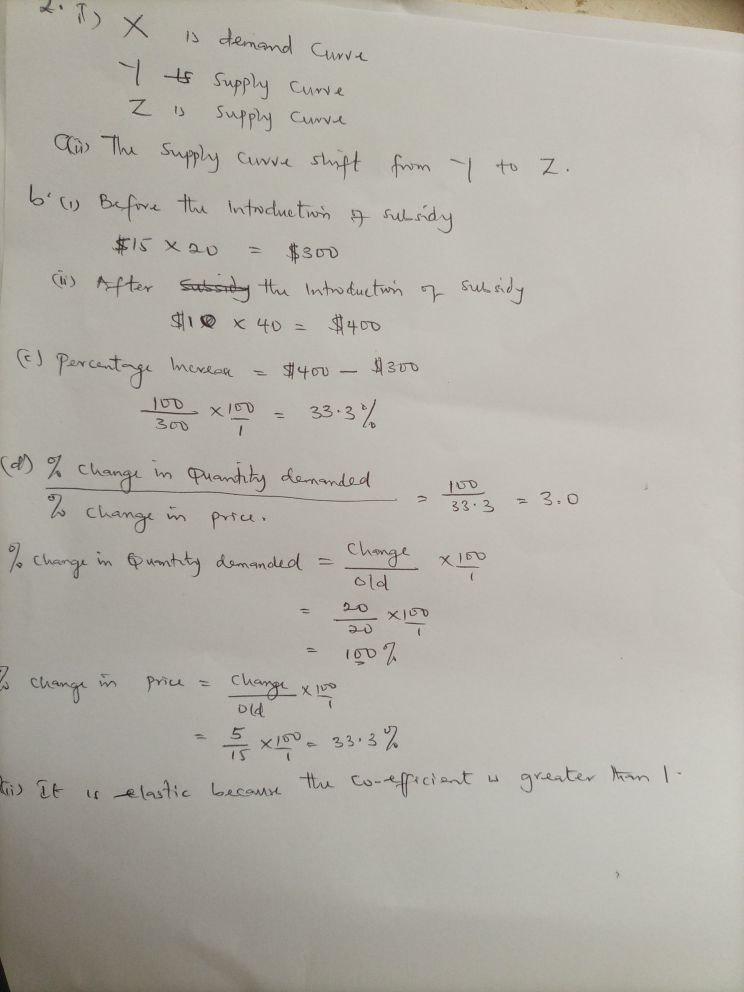 2. i) X is demand Curve
Y is Supply Curve
Z is Supply Curve
a(ii) The Supply Curve shift from Y to Z.
b. (i) Before the Introduction of subsidy
$15 × 20 = $300
(ii) After Subsidy the Introduction of Subsidy
$10 × 40 = $400
(c) Percentage Increase = $400 - $300
100/300 × 100/1 = 33.3%
(d) % change in Quantity demanded / % change in price. = 100/33.3 = 3.0
% change in Quantity demanded = Change/Old × 100/1
= 20/20 × 100/1
= 100%
% change in price = Change/Old × 100/1
= 5/15 × 100/1 = 33.3%
(ii) It is elastic because the co-efficient is greater than 1.